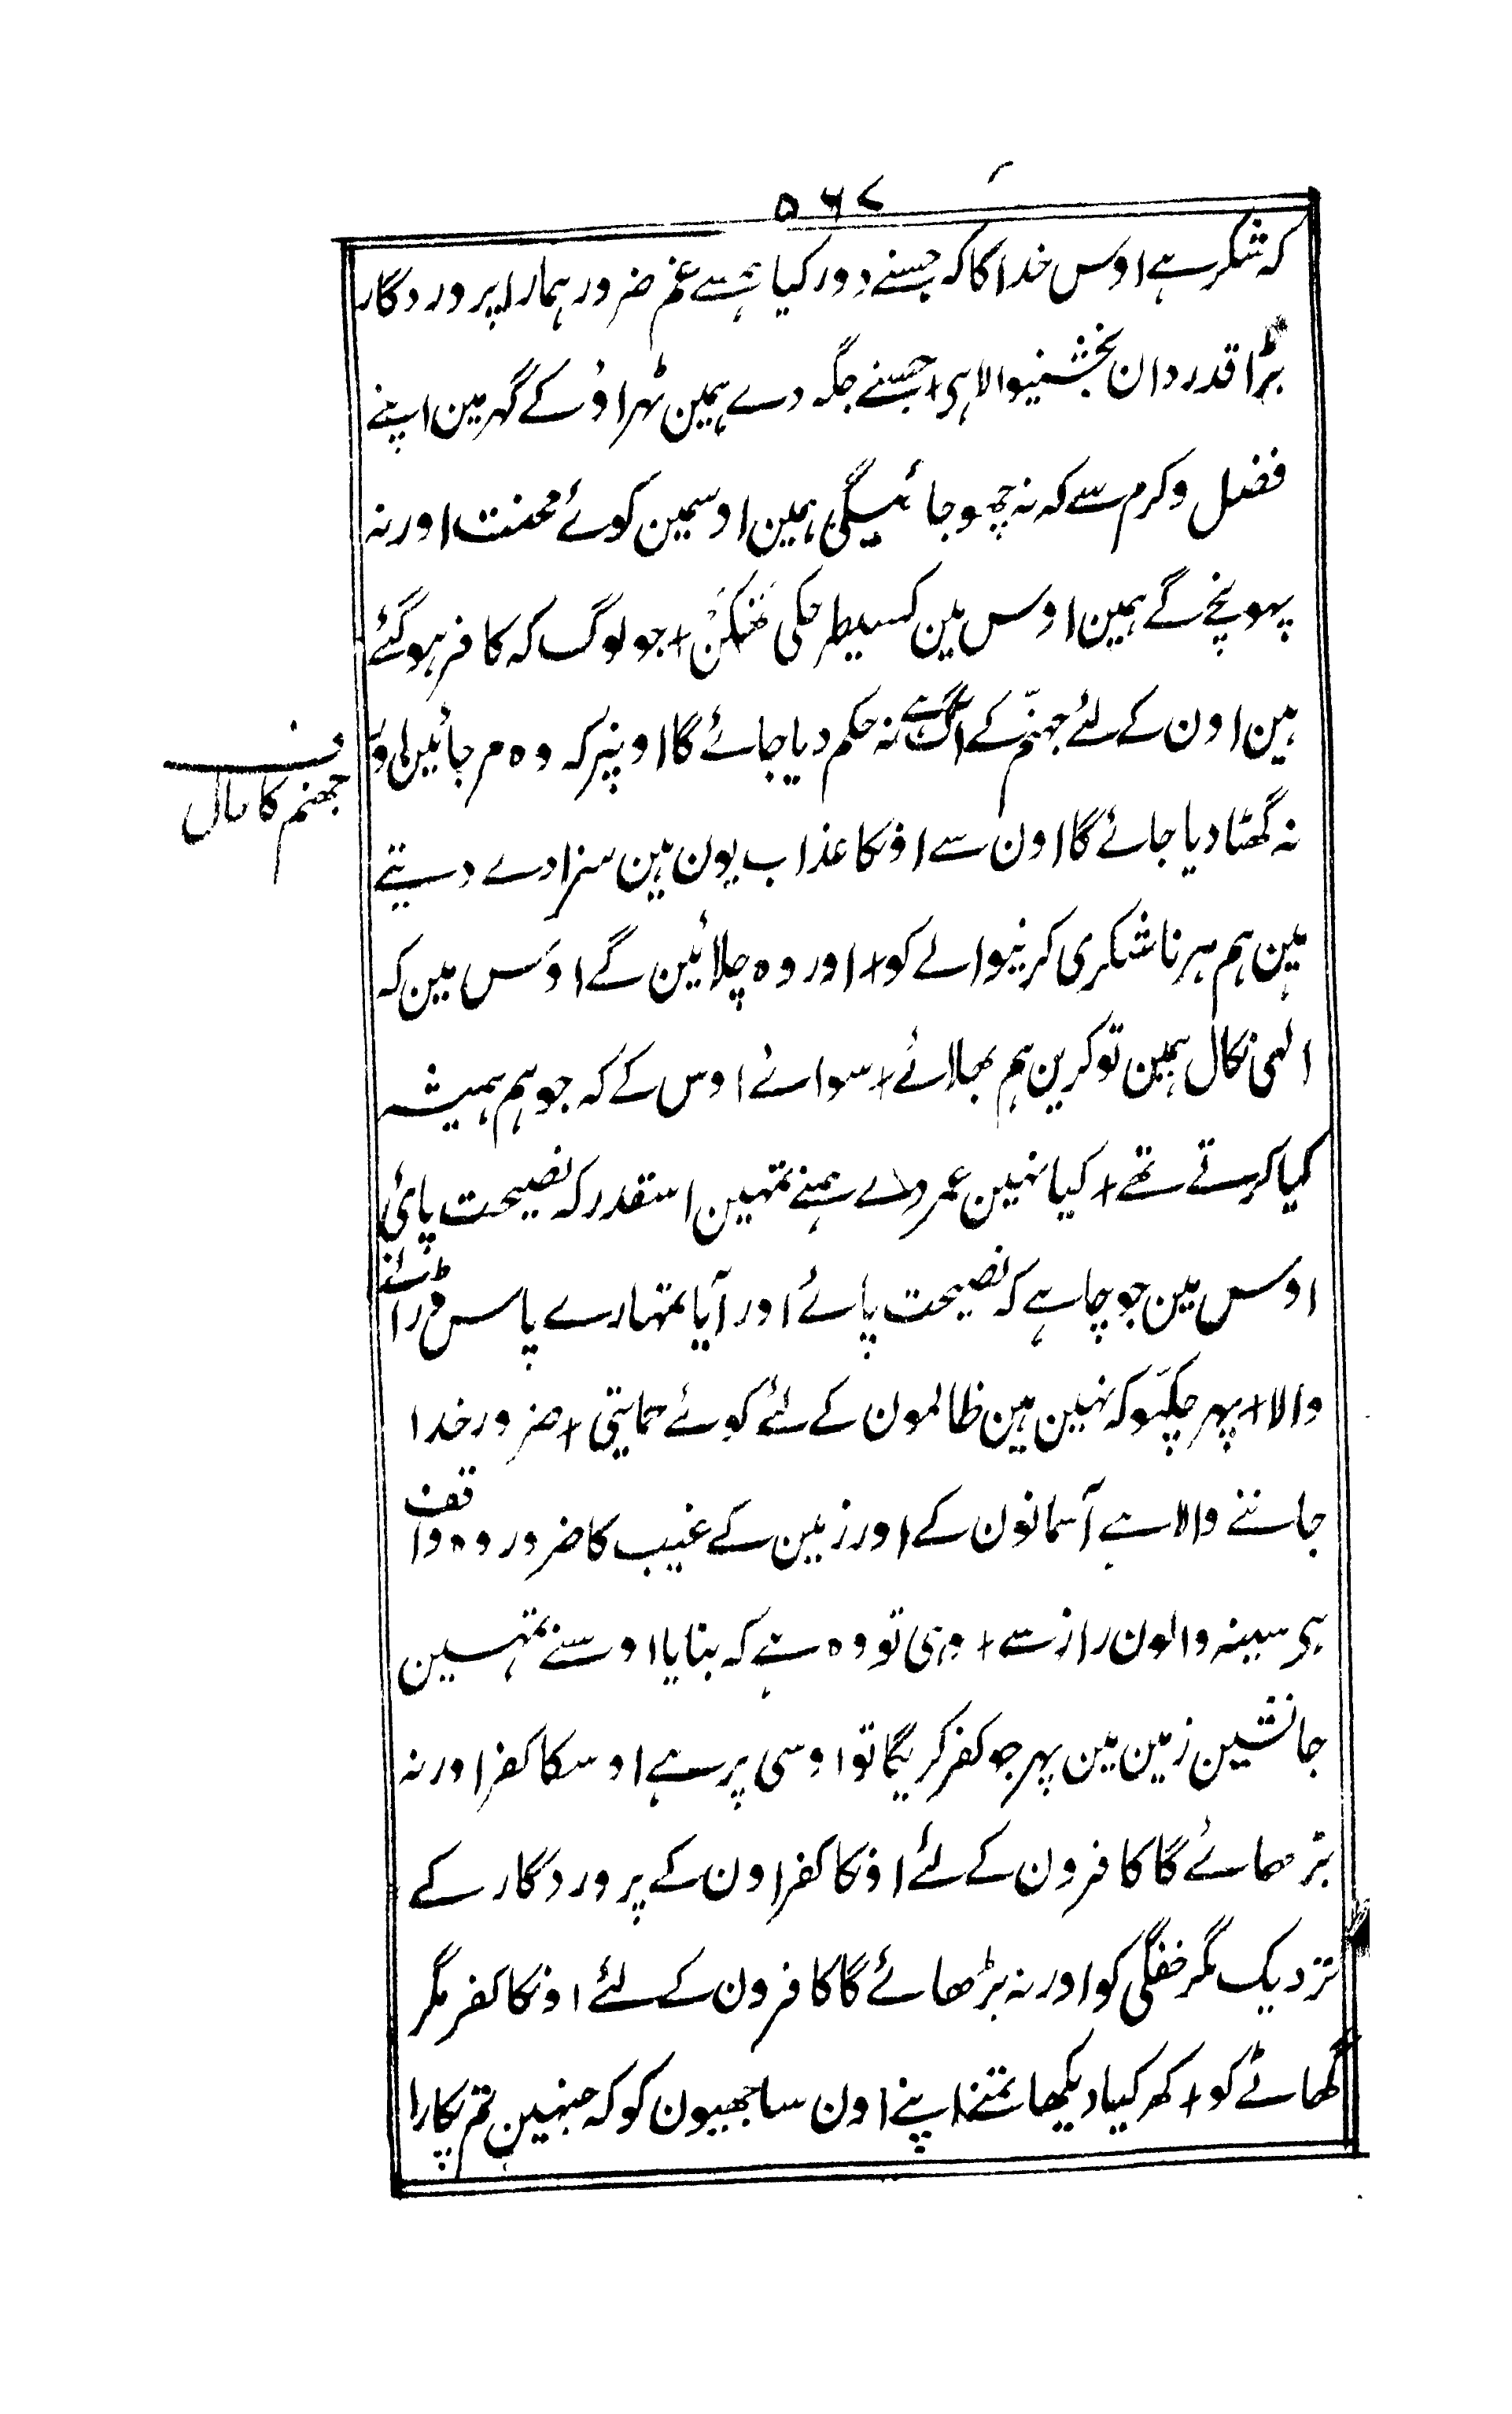 ۵۶۷
کہ شکر ہے اوس خدا کا کہ جسنے دور کیا ہمسے غم ضرور ہمارا پروردگار
بڑا قدردان بخشنیوالا ہی + جسنے جگہ دے ہمین ٹہراؤ کے گہر مین اپنے
فضل و کرم سے کہ نہ چھو جائیگی ہمین اوسمین کوئے محنت اور نہ
پہونچے گے ہمین اوس مین کسیطرحکی تھکن + جو لوگ کہ کافر ہو گئے
ہین اون کے لئے جہنّم کے آگ ہے نہ حکم دیا جائے گا اونپر کہ وہ مر جائین اور
ف
جھنم کا حال
نہ گھٹا دیا جائے گا اون سے اونکا عذاب یون ہین سزا دے دیتے
ہین ہم ہر ناشکری کرنیوالے کو + اور وہ چلائین گے اوس مین کہ
الہی نکال ہمین تو کرین ہم بھلائے + سوائے اوس کے کہ جو ہم ہمیشہ
کیا کرتے تھے + کیا نہین عمر دے ہمنے تمہین اسقدر کہ نصیحت پائی
اوس مین جو چاہے کہ نصیحت پائے اور آیا تمہارے پاس ڈرانے
والا + پہر چکہو کہ نہین ہین ظالمون کے لئے کوئے حمایتی + ضرور خدا
جاننے والا ہے آسمانون کے اور زمین کے غیب کا ضرور وہ واقف
ہی سینہ والون راز سے + وہی تو وہ ہے کہ بنایا اوسنے تمہین
جانشین زمین مین پہر جو کفر کریگا تو اوسی پر ہے اوسکا کفر اور نہ
بڑھائے گا کافرون کے لئے اونکا کفر اون کے پروردگار کے
نزدیک مگر خفگی کو اور نہ بڑھائے گا کافرون کے لئے اونکا کفر مگر
گھاٹے کو + کھر کیا دیکھا تمنے اپنے اون ساجھیون کو کہ جنہین تم پکارا